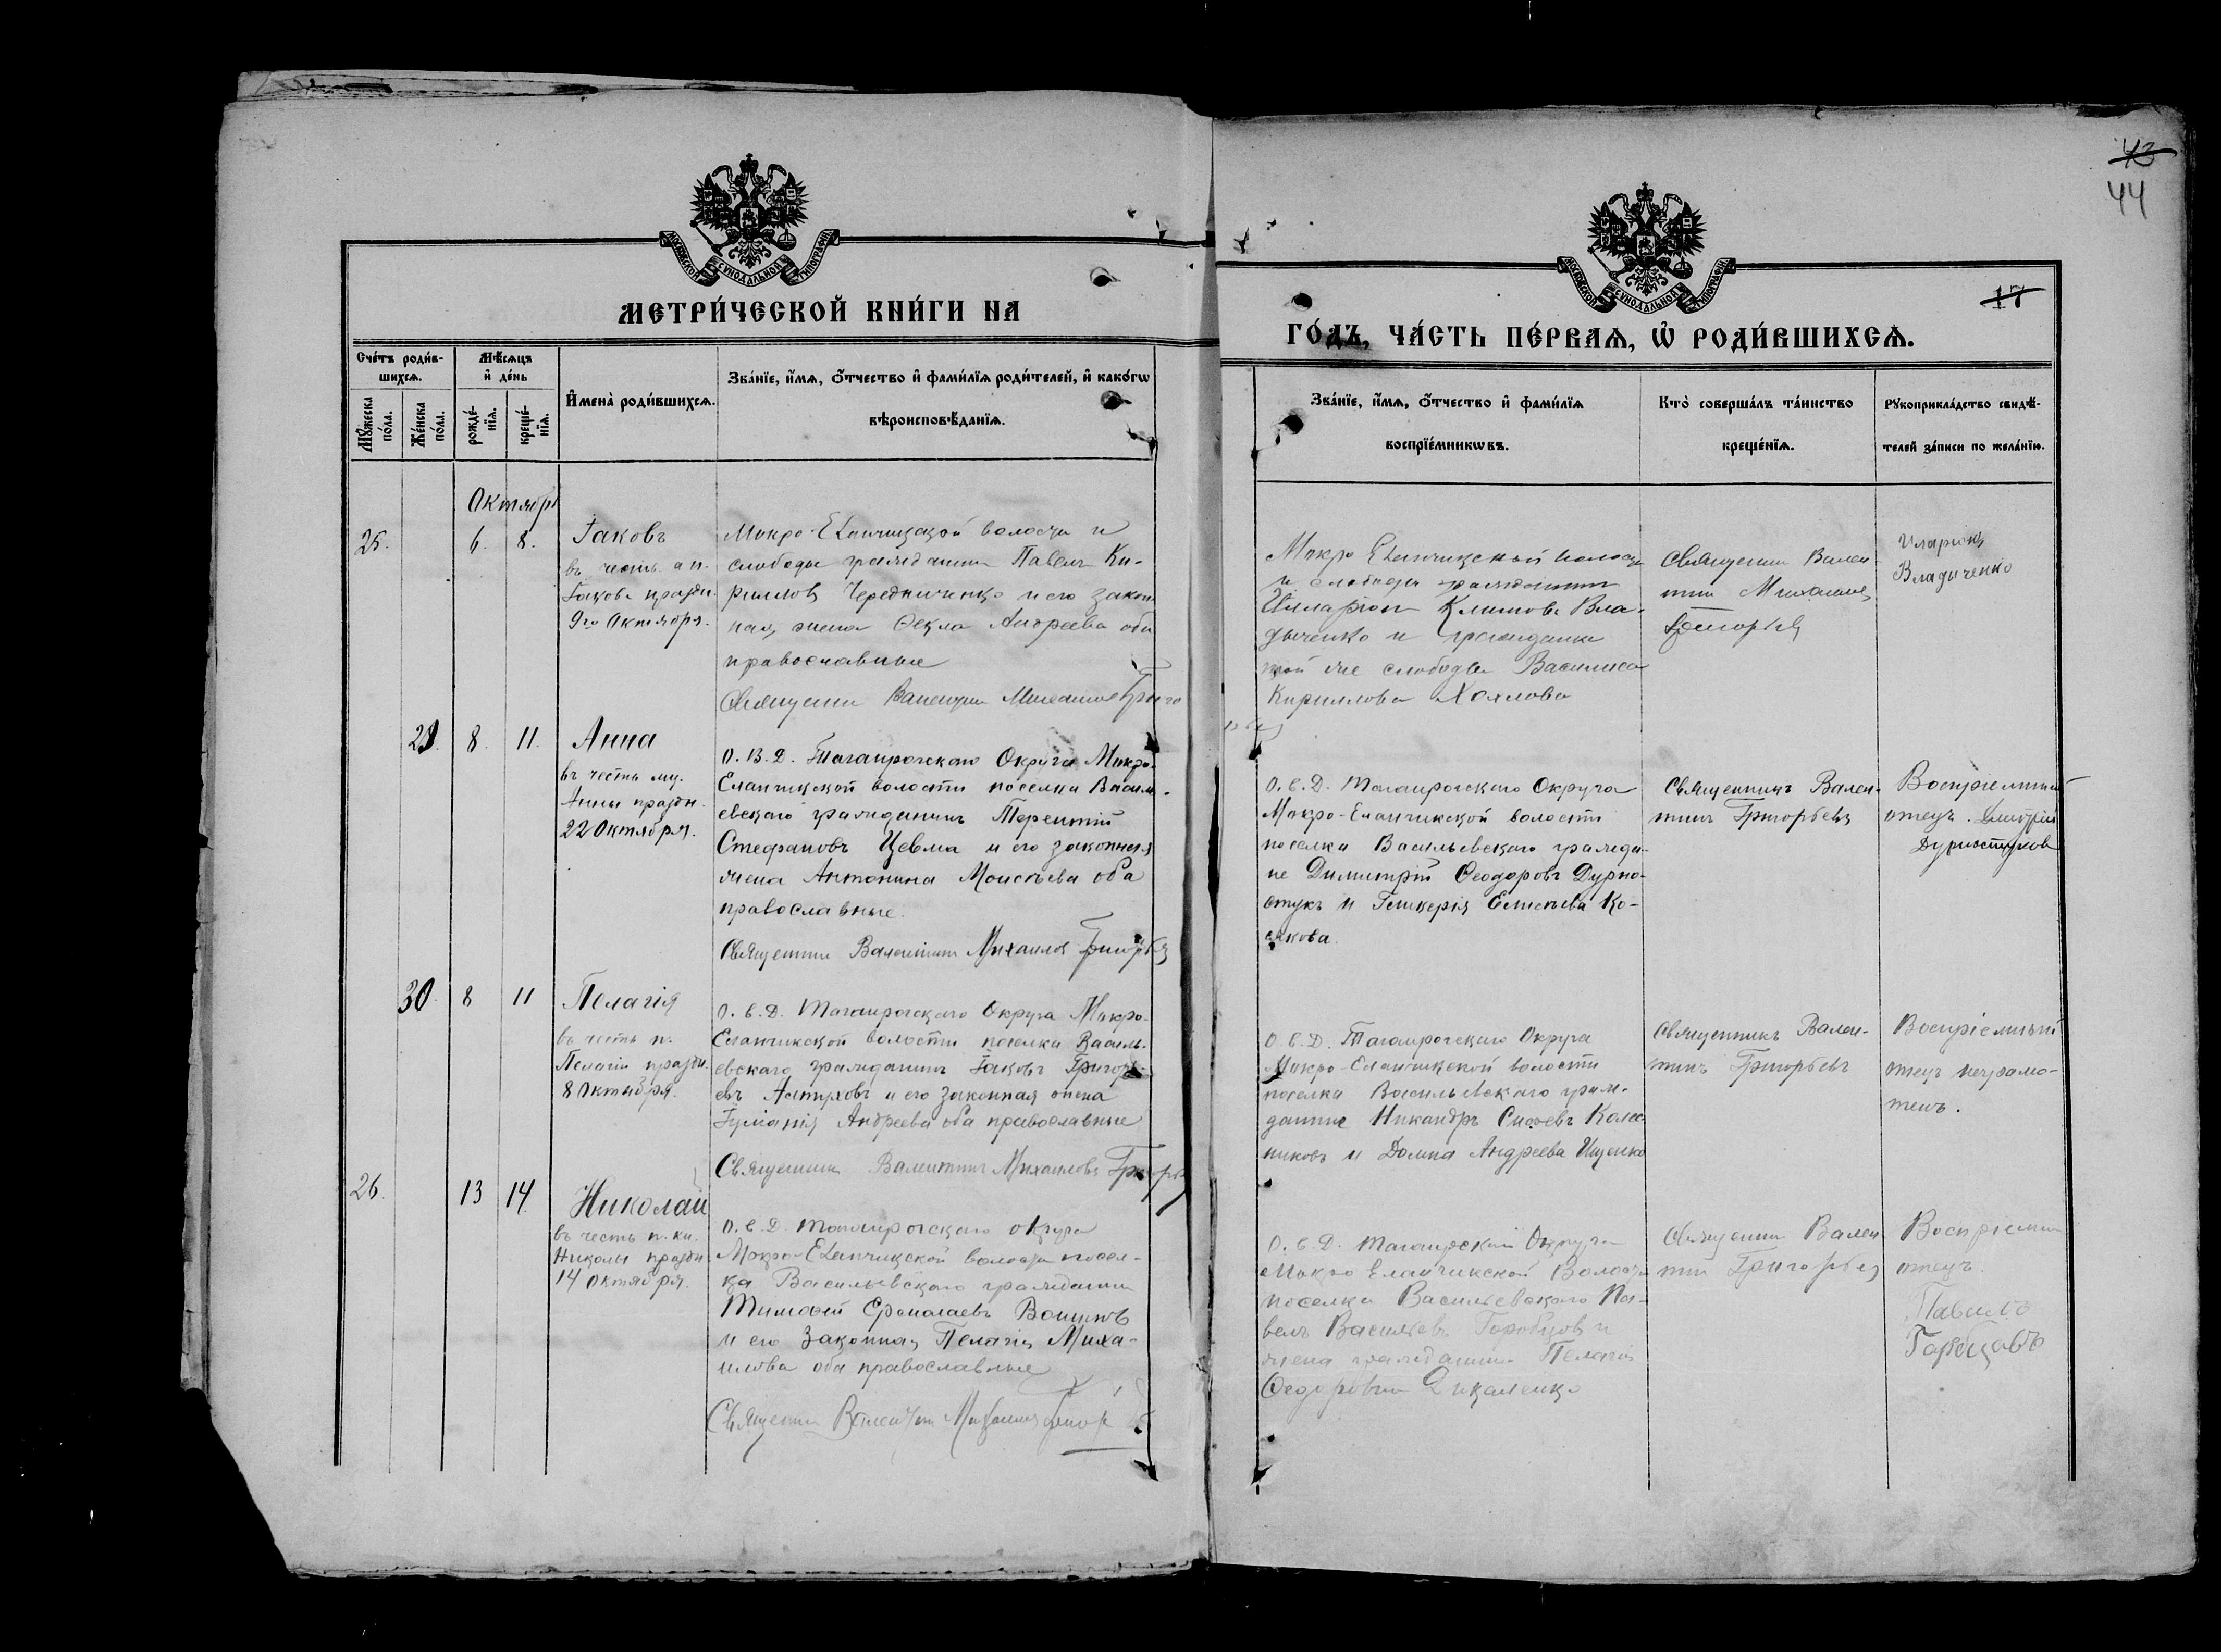 43
44
17
МОСКОВСКОЙ СУНОДАЛЬНОЙ ТИПОГРАФІИ
МОСКОВСКОЙ СУНОДАЛЬНОЙ ТИПОГРАФІИ
МЕТРИ́ЧЕСКОЙ КНИ́ГИ НА
ГО́ДЪ, ЧА́СТЬ ПЕ́РВАѦ, Ѡ҆ РОДИ́ВШИХСѦ.
Сче́тъ роди́в-
шихсѧ.
Мѣ́сѧцъ
и҆ де́нь
Мꙋ́жеска
по́ла.
Же́нска
по́ла.
рожде́-
нїѧ.
креще́-
нїѧ.
И҆мена̀ роди́вшихсѧ.
Зва́нїе, и҆́мѧ, ѻ҆́тчество и҆ фами́лїѧ роди́телей, и҆ како́гѡ
вѣроисповѣ́данїѧ.
Зва́нїе, и҆́мѧ, ѻ҆́тчество и҆ фами́лїѧ
воспрїе́мникѡвъ.
Кто̀ соверша́лъ та́инство
креще́нїѧ.
Рꙋкоприкла́дство свидѣ́-
телей за́писи по жела́нїю.
Октябрь
25. 6. 8.
Іаковъ
въ честь ап.
Іакова праздн.
9го Октября.
Мокро-Еланчикской волости и
слободы гражданин Павелъ Ки-
риллов Чередниченко и его закон
ная жена Ѳекла Андреева оба
православные
Священник Валентин Михаилов
Мокро Еланчикской волости
и слободы гражданин
Илларіон Климовъ Вла-
дыченко и гражданка
той же слободы Василиса
Кириллова Хохлова
Священник Вален
тин Михаилов
Григорьев
Иларіон
Владыченко
29 8. 11.
Анна
въ честь му.
Анны праздн.
22 Октября.
О. В. Д. Таганрогскаго Округа Мокро-
Еланчикской волости поселка Василь-
евскаго гражданинъ Терентій
Стефановъ Цевма и его законная
жена Антонина Моисѣева оба
православные.
Священник Валентин Михаилов Григорьев
О. в. Д. Таганрогскаго Округа
Мокро-Еланчикской волости
поселка Васильевскаго гражда-
не Димитрій Ѳеодоровъ Дурно-
стукъ и Гликерія Елисѣева Ко-
сякова.
Священникъ Вален-
тинъ Григорьевъ
Воспріемный
отецъ. Дмитрій
30. 8 11
Пелагія
въ честь п.
Пелагіи праздн.
8 Октября.
О. в. Д. Таганрогскаго Округа Мокро-
Еланчикской волости поселка Василь-
евскаго гражданинъ Іаковъ Григорь-
евъ и его законная жена
Андреева оба православные
Священник Валентин Михаилов
О. в. Д. Таганрогскаго Округа
Мокро-Еланчикской волости
поселка Васильевскаго граж-
данине Никандръ Колес-
никовъ и Домна Андреева Ищенко
Священникъ Вален-
тинъ Григорьевъ
Воспріемный
отецъ неграмо-
тенъ.
26. 13 14
Николай
въ честь
Николы праздн.
14 Октября.
О. в. Д. Таганрогскаго округа
Мокро-Еланчикской волости посел-
ка Васильевскаго гражданин
Тимофей
и его Законная Пелагія Миха-
илова оба православные
Священник Валентин Михаилов
О. в. Д. Таганрогскаго Округа
Мокро Еланчикской Волости
поселка Васильевскаго Па-
велъ Васильевъ Горобцов и
жена гражданина Пелагія
Ѳедоровна Дикаленко
Священник Вален
тин Григорьев
Воспріемный
отецъ.
Павилъ
Гарбцовъ